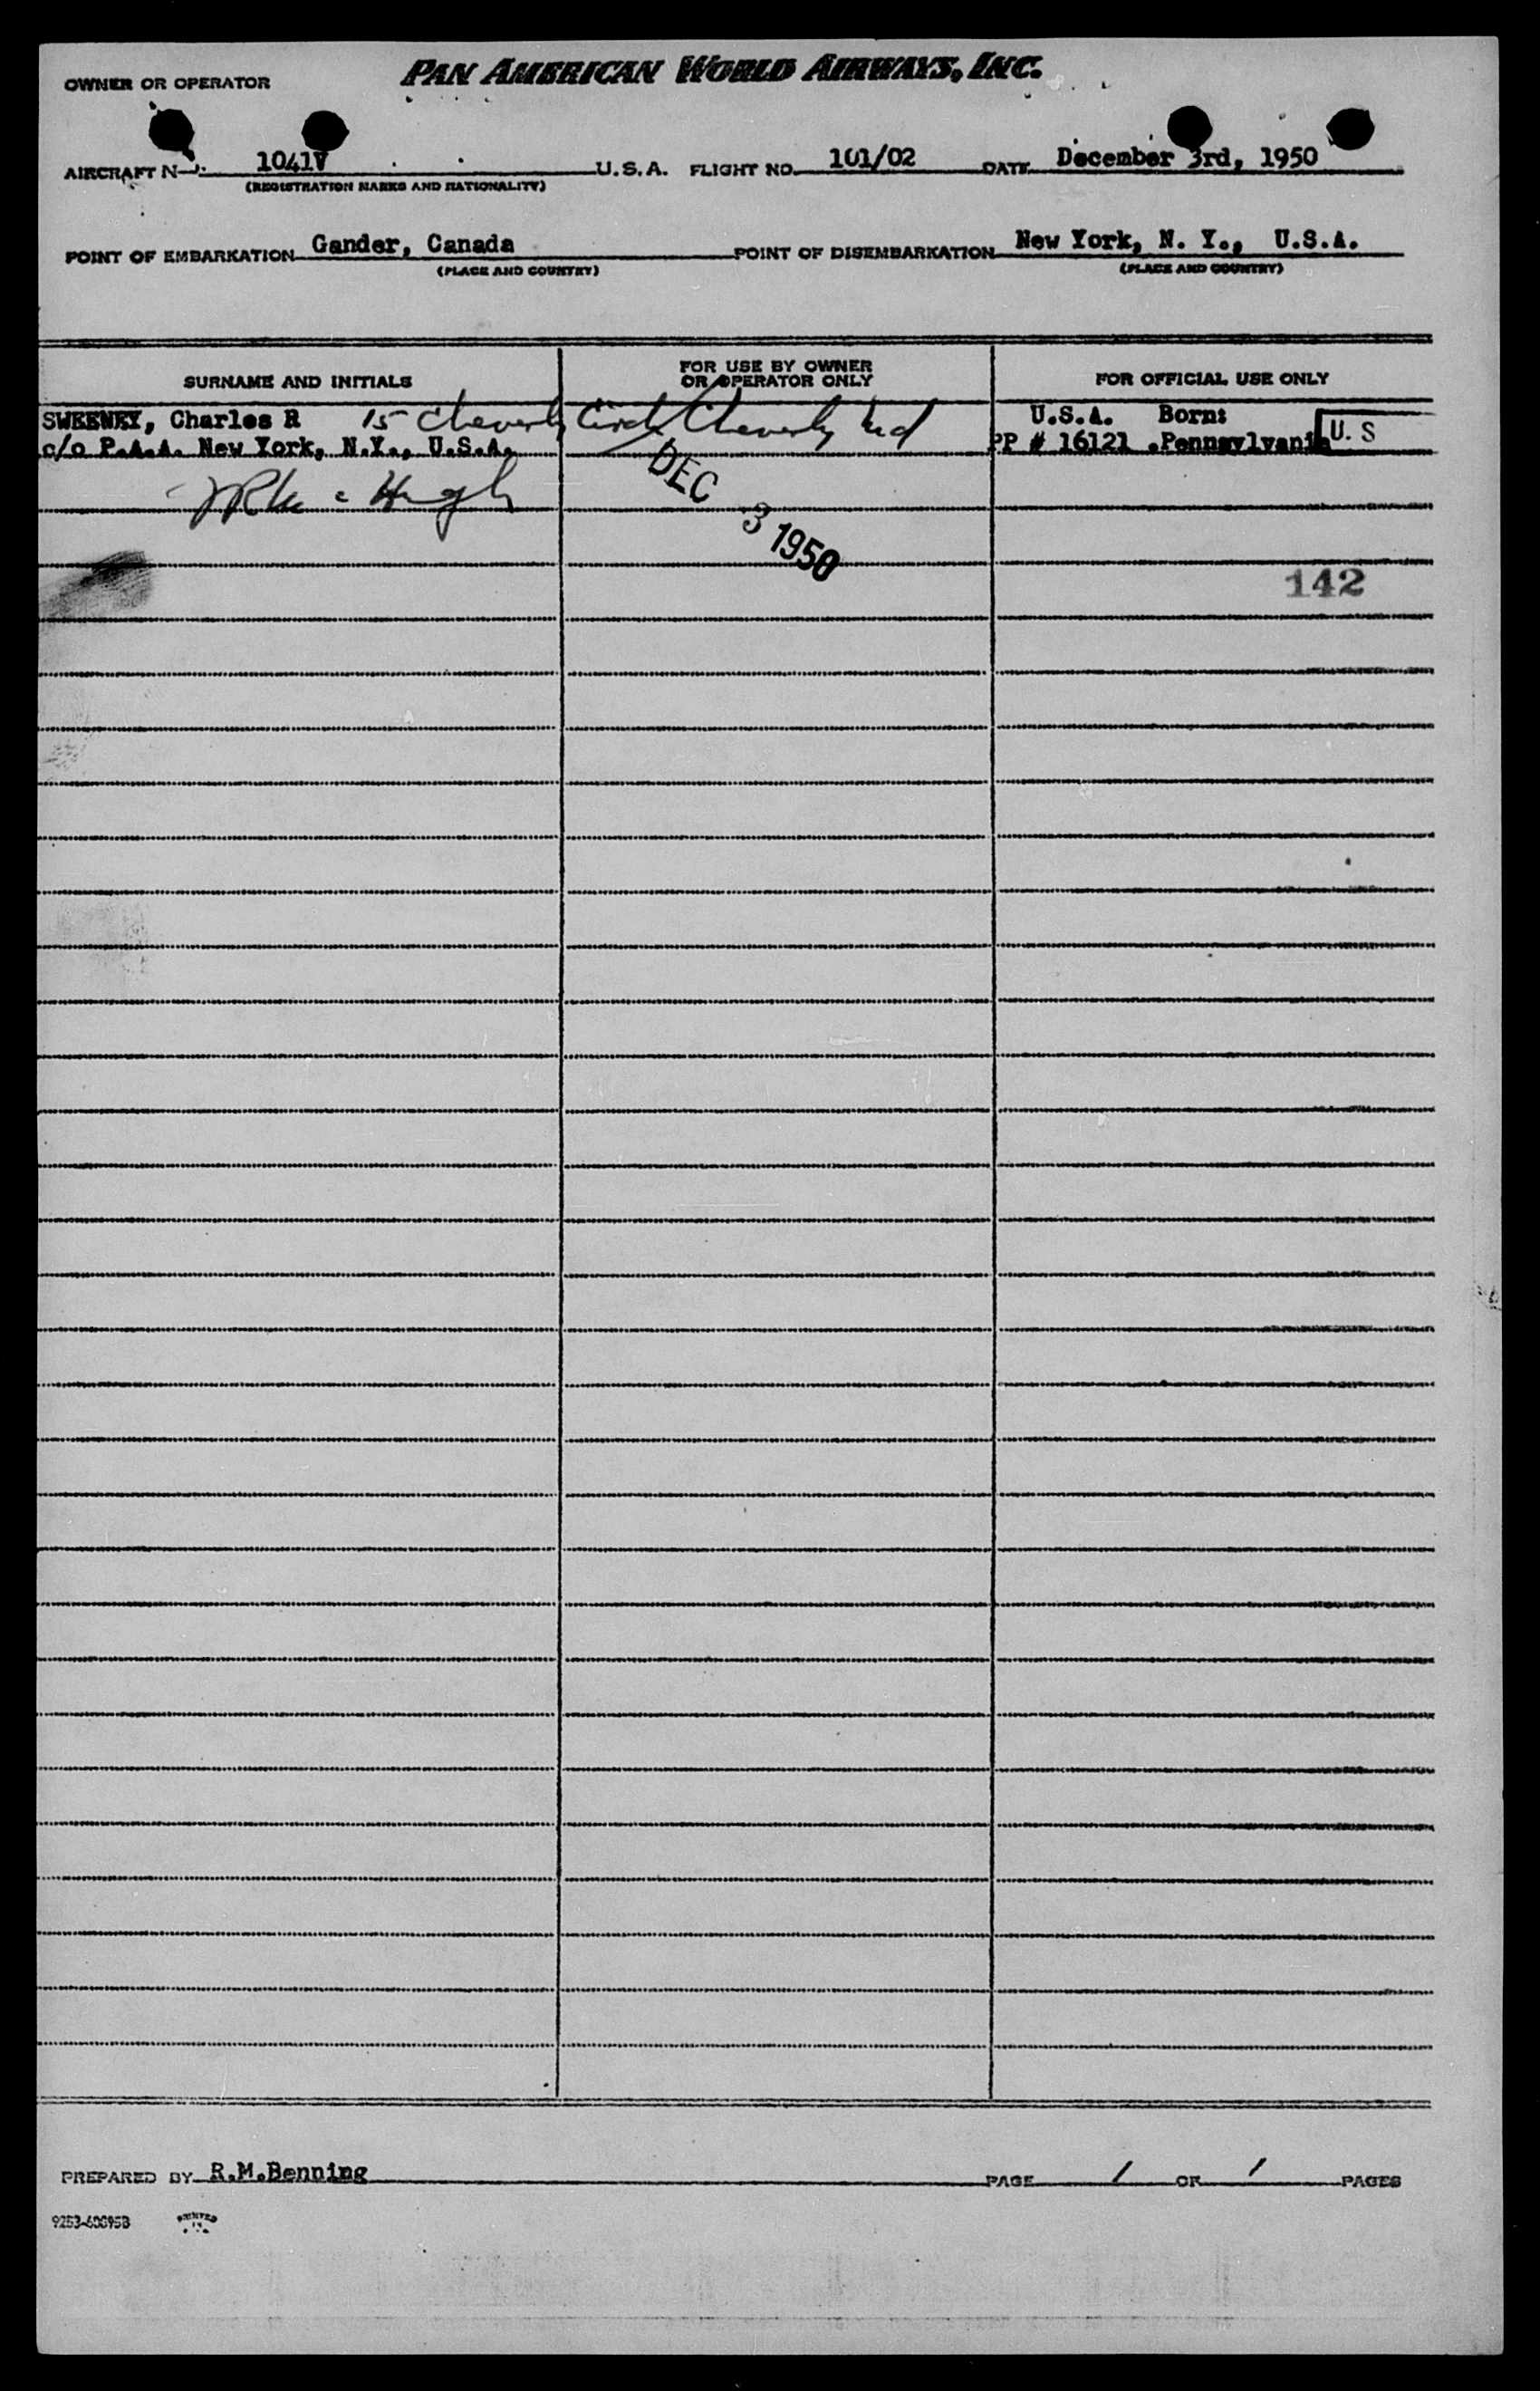 PAN AMERICAN WORLD AIRWAYS, INC.
OWNER OR OPERATOR
AIRCRAFT No. 1041V U.S.A. FLIGHT NO. 101/02 DATE December 3rd, 1950
(REGISTRATION MARKS AND NATIONALITY)
POINT OF EMBARKATION Gander, Canada POINT OF DISEMBARKATION New York, N. Y., U.S.A.
(PLACE AND COUNTRY) (PLACE AND COUNTRY)
SURNAME AND INITIALS
FOR USE BY OWNER
OR OPERATOR ONLY
FOR OFFICIAL USE ONLY
SWEENEY, Charles R 15 Cheverly Circle Cheverly Md U.S.A. Born:
c/o P.A.A. New York, N.Y., U.S.A. PP # 16121 .Pennsylvania U. S
DEC 3 1950
142
PREPARED BY R.M.Benning PAGE 1 OF 1 PAGES